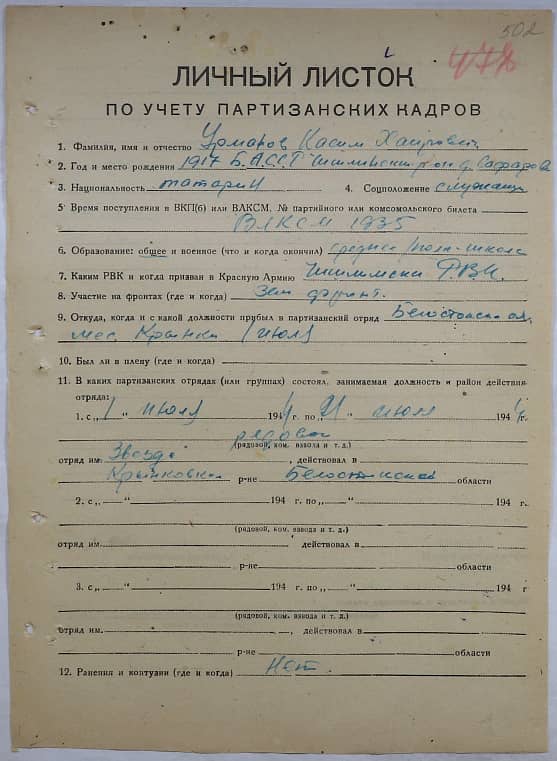 502
478
ЛИЧНЫЙ ЛИСТОК
ПО УЧЕТУ ПАРТИЗАНСКИХ КАДРОВ
1. Фамилия, имя и отчество Умаров Касим
2. Год и место рождения 1917 Б.АССР д. Сафарово
3. Национальность татарин 4. Соцположение служащ
5 Время поступления в ВКП(б) или ВЛКСМ, № партийного или комсомольского билета
ВЛКСМ 1935
6. Образование: общее и военное (что и когда окончил) среднее /полк. школа
7. Каким РВК и когда призван в Красную Армию РВК.
8. Участие на фронтах (где и когда) Зап фронт.
9. Откуда, когда и с какой должности прибыл в партизанский отряд Белостокская
мес Крынки 1 июля
10. Был ли в плену (где и когда)
11. В каких партизанских отрядах (или группах) состоял, занимаемая должность и район действия
отряда:
1. с „1" июля 1944 г. по „21" июля 1944 г.
рядовой
(рядовой, ком. взвода и т. д.)
отряд им. Звезда, действовал в
Крынковском р-не Белостокской области
2. с „ " 194 г по „ " 194 г.
(рядовой, ком. взвода и т. д.)
отряд им. действовал в
р-не области
3. с „ " 194 г. по „ " 194 г
(рядовой, ком. взвода и т. д.)
отряд им. , действовал в
р-не области
12. Ранения и контузии (где и когда) Нет